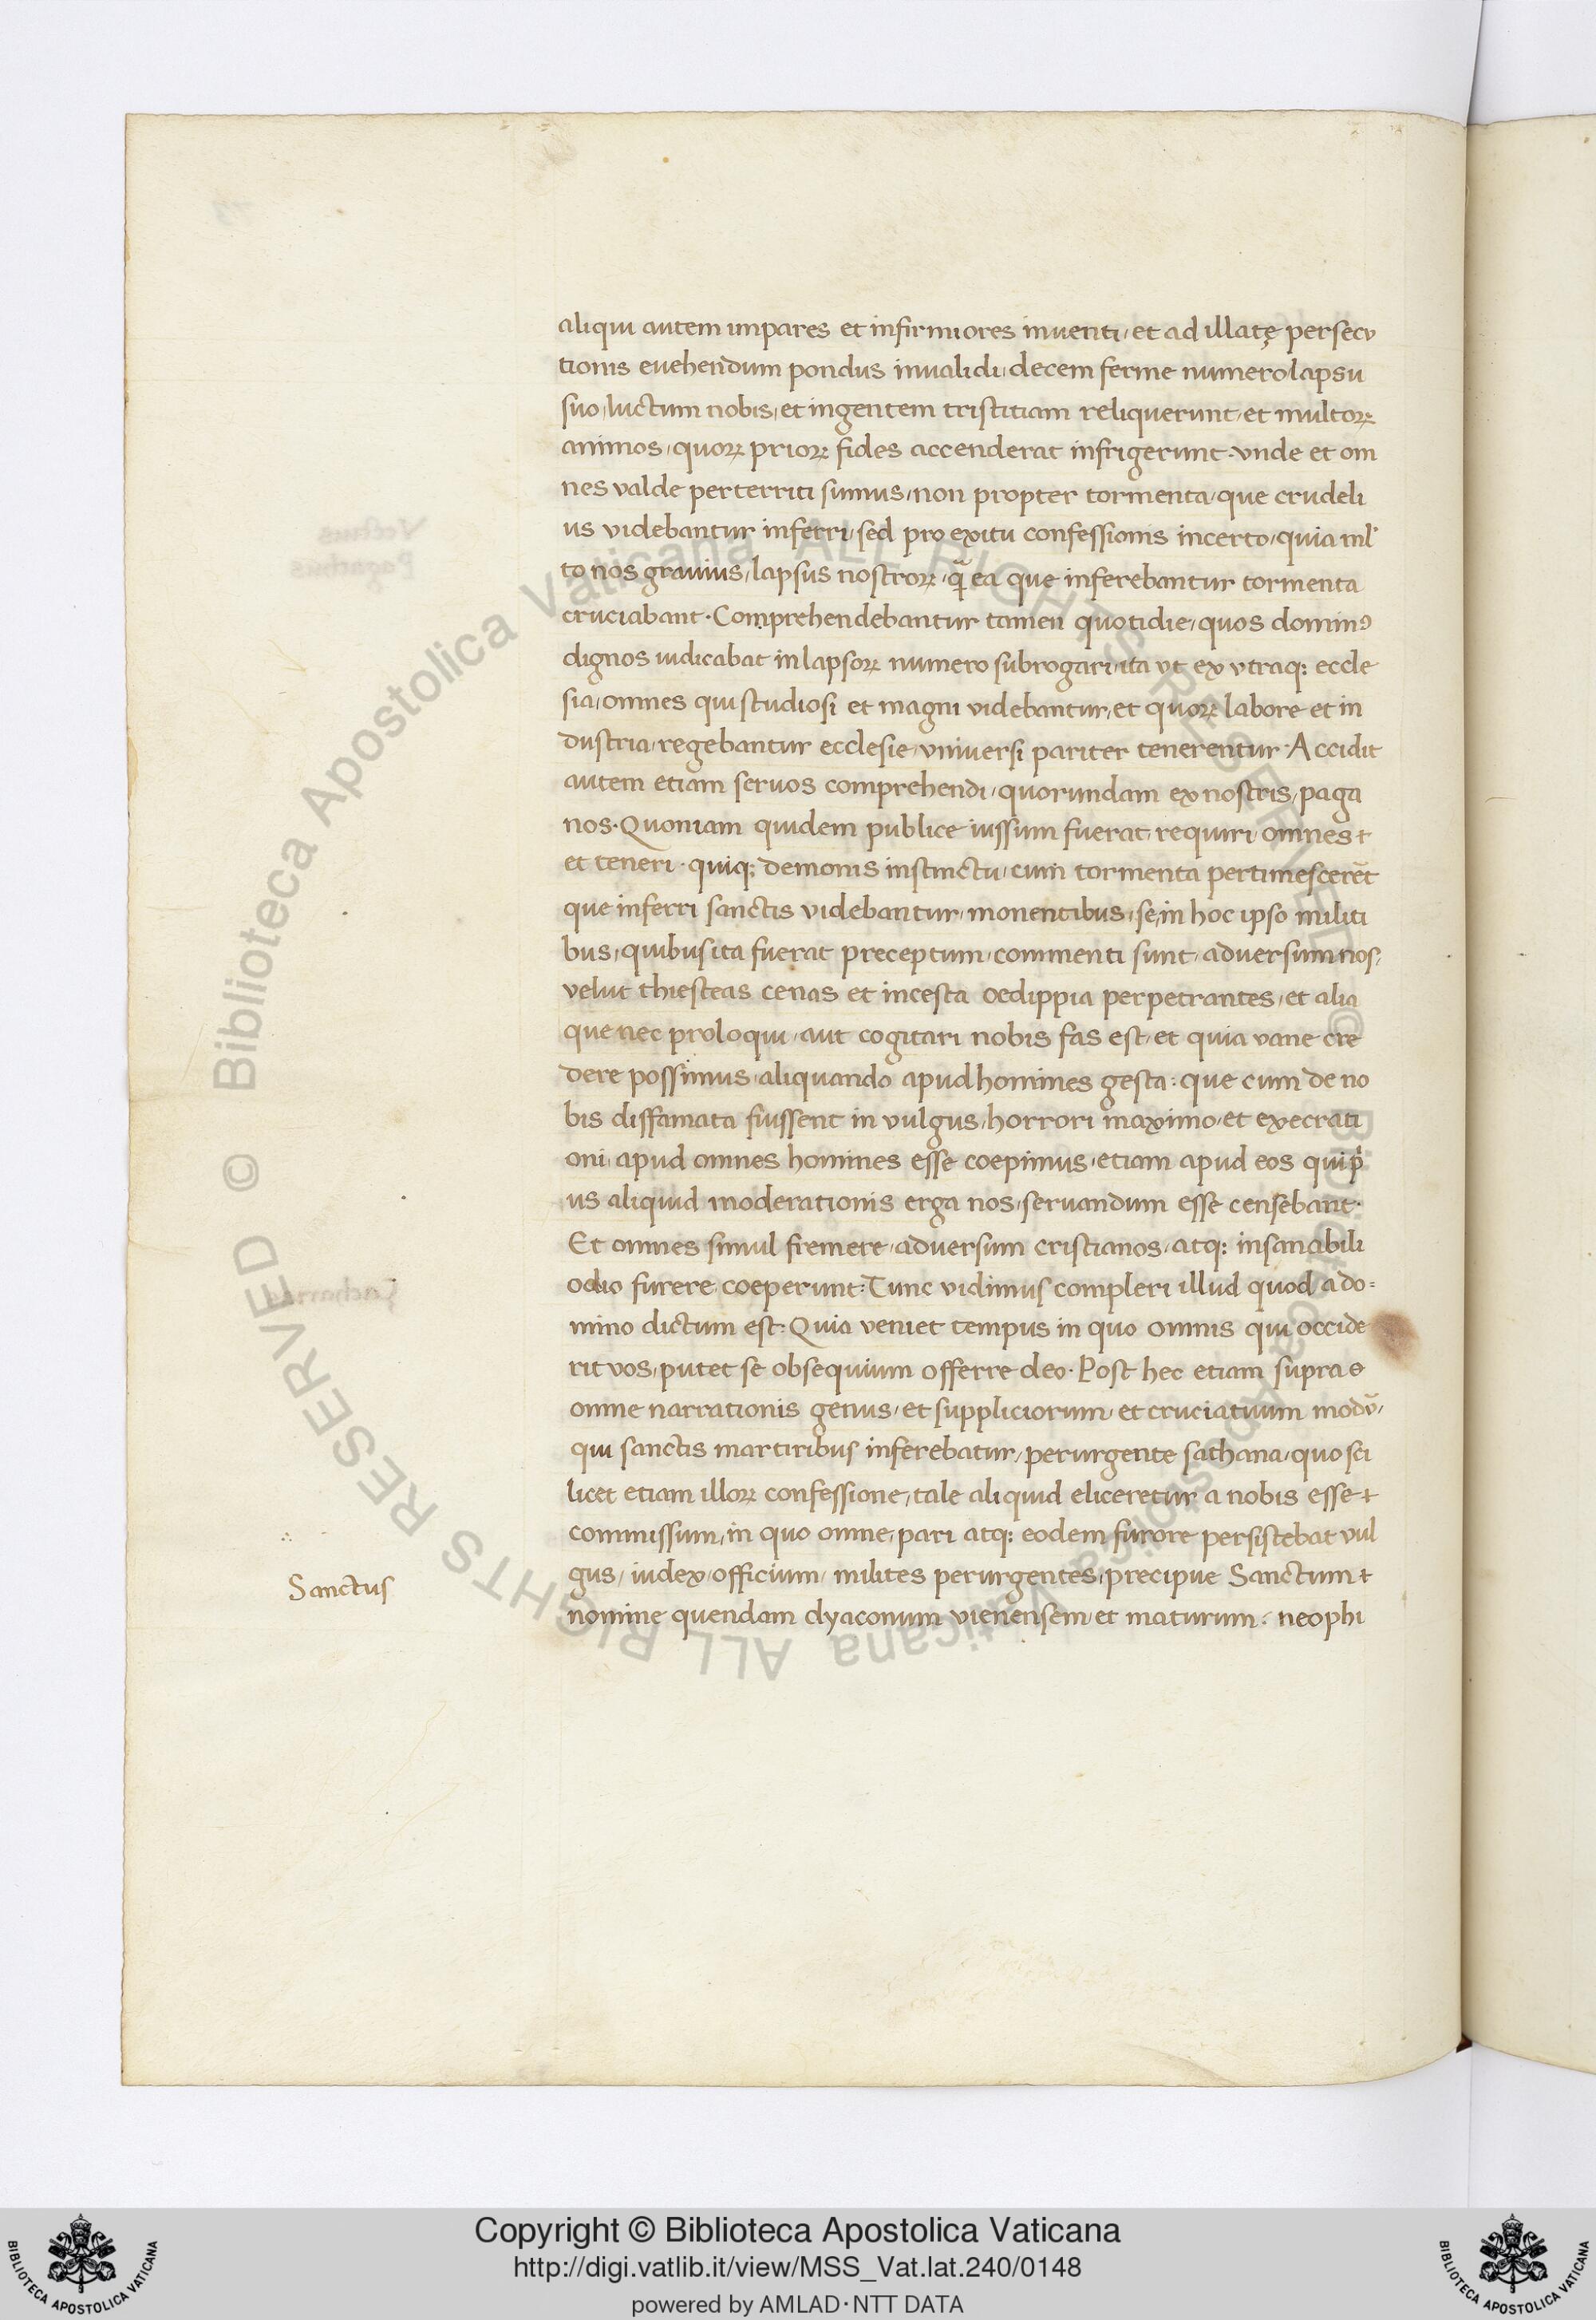 aliqui autem impares et infirmiores inuenti, et ad illatę persecu
tionis euehendum pondus inualidi, decem ferme numero lapsu
suo, luctum nobis, et ingentem tristitiam reliquerunt, et multoꝝ
animos, quoꝝ prioꝝ fides accenderat infrigerunt. vnde et om
nes valde perterriti sumus, non propter tormenta, que crudeli
us videbantur inferri, sed pro exitu confessionis incerto, quia ml'
to nos grauius, lapsus nostroꝝ, qᷓ ea que inferebantur tormenta
cruciabant. Comprehendebantur tamen quotidie, quos dominꝰ
dignos iudicabat in lapsoꝝ numero subrogari, ita vt ex vtraq; eccle
sia, omnes qui studiosi et magni videbantur, et quoꝝ labore et in
dustria, regebantur ecclesie, vniuersi pariter tenerentur. Accidit
autem etiam seruos comprehendi, quorumdam ex nostris, paga
nos. Quoniam quidem publice iussum fuerat, requiri omnes
et teneri. quiq; demonis instinctu, cum tormenta pertimescerēt
que inferri sanctis videbantur, monentibus, se, in hoc ipso militi
bus, quibus ita fuerat preceptum, commenti sunt, aduersum nos,
velut thiesteas cenas et incesta oedippia perpetrantes, et alia
que nec proloqui, aut cogitari nobis fas est, et quia vane cre
dere possimus, aliquando apud homines gesta: que cum de no
bis diffamata fuissent in vulgus, horrori maximo, et execrati
oni, apud omnes homines esse coepimus, etiam apud eos qui pͥ
us aliquid moderationis erga nos, seruandum esse censebant.
Et omnes simul fremere, aduersum cristianos, atq; insanabili
odio furere coeperunt: Tunc vidimus compleri illud quod a do=
mino dictum est: Quia veniet tempus in quo omnis qui occide
rit vos, putet se obsequium offerre deo. Post hec etiam supra
omne narrationis genus, et suppliciorum, et cruciatuum modū,
qui sanctis martiribus inferebatur, perurgente sathana, quo sci
licet etiam illoꝝ confessione, tale aliquid eliceretur a nobis esse
commissum, in quo omne, pari atq; eodem furore persistebat vul
gus, iudex, officium, milites perurgentes, precipue Sanctum
nomine quendam dyaconum vienensem, et maturum: neophi
Sanctus
© Biblioteca Apostolica Vaticana ALL RIGHTS RESERVED
© Biblioteca Apostolica Vaticana ALL RIGHTS RESERVED
Copyright © Biblioteca Apostolica Vaticana
http://digi.vatlib.it/view/MSS_Vat.lat.240/0148
powered by AMLAD·NTT DATA
BIBLIOTECA APOSTOLICA VATICANA
BIBLIOTECA APOSTOLICA VATICANA